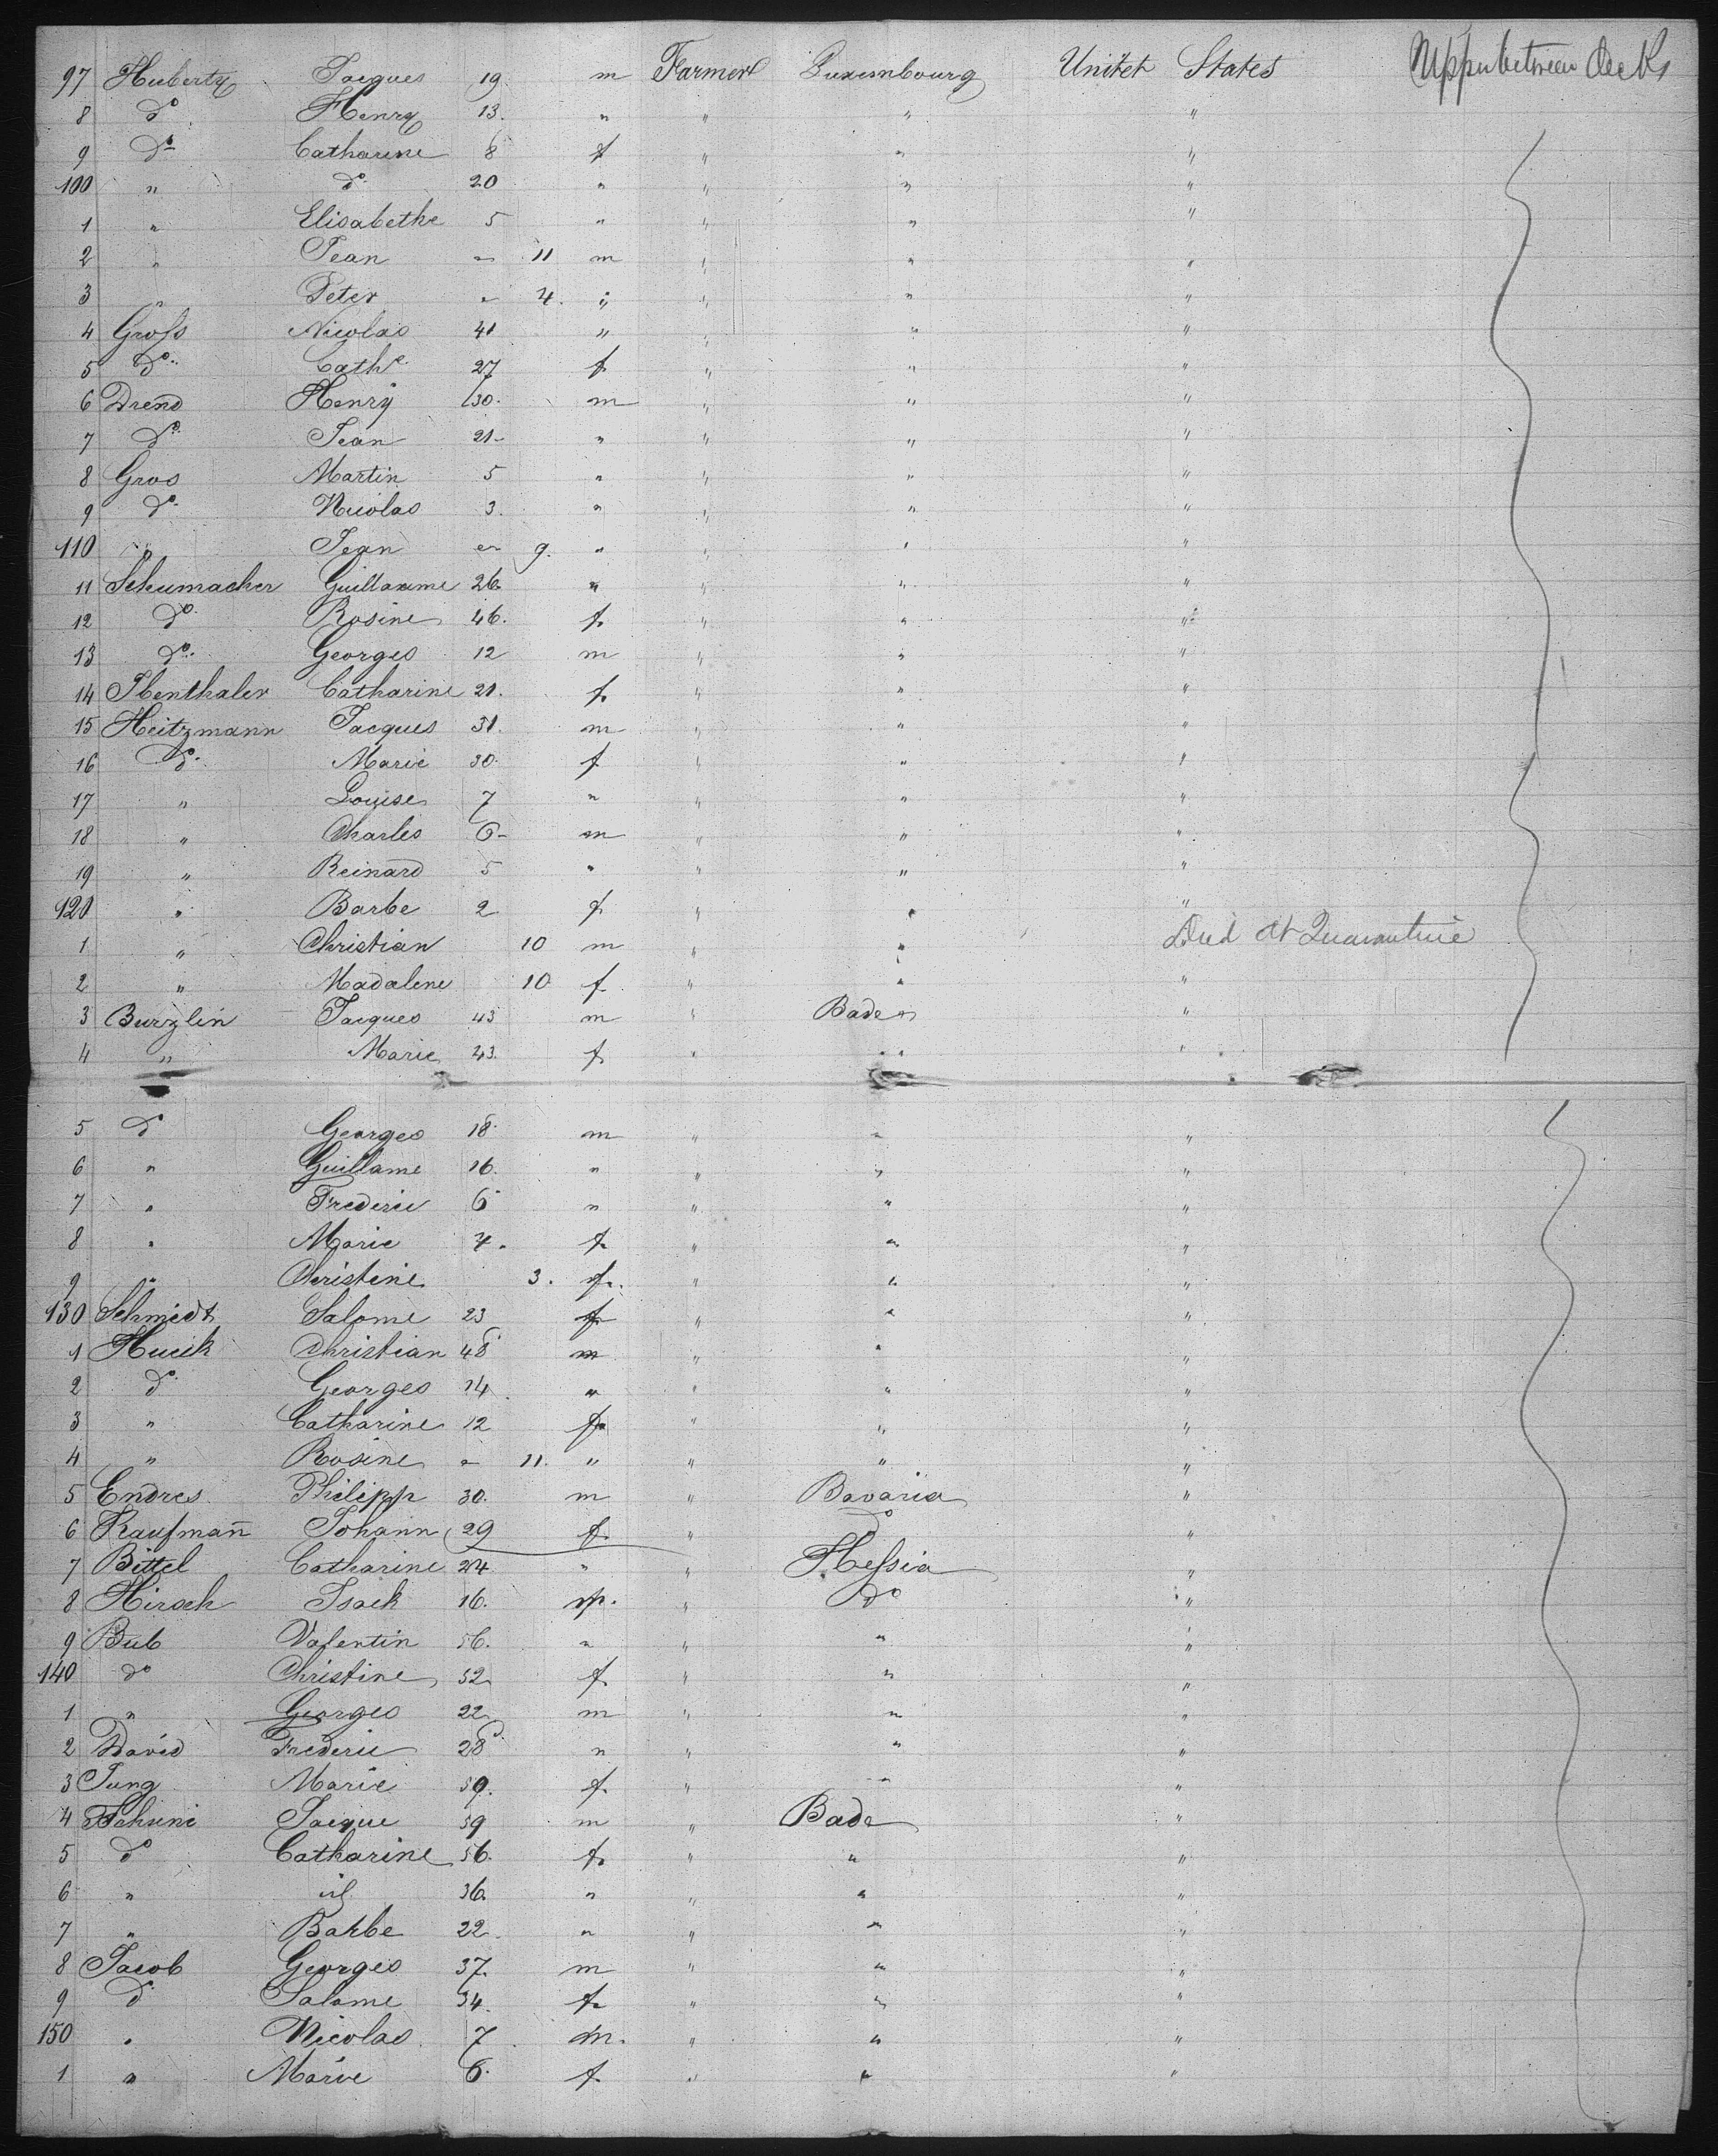 97 Huberty Jacques 19. m Farmer Luxembourg Unitet States Upper between decks
8 do Henry 13. " " " "
9 do Catharine 8 f " " "
100 " do 20 " " " "
1 " Elisabethe 5 " " " "
2 " Jean " 11 m " " "
3 " Peter " 4. " " " "
4 Groß Nicolas 41 " " " "
5 do Cathe 27 f " " "
6 Drend Henry 30. m " " "
7 do Jean 21 " " " "
8 Gros Martin 5 " " " "
9 do Nicolas 3. " " " "
110 " Jean " 9. " " " "
11 Schumacher Guillaume 26. " " " "
12 do Rosine 46. f. " " "
13 do Georges 12 m " " "
14 Ibenthaler Catharine 21. f. " " "
15 Heitzmann Jacques 31. m " " "
16 do Marie 30. f " " "
17 " Louise 7 " " " "
18 " Charles 6 m " " "
19 " Reinard 5 " " " "
120 " Barbe 2 f " " "
1 " Christian 10 m " " Died at Quarantine
2 " Madalene 10 f. " " "
3 Burzlin Jacques 43 m " Baden "
4 " Marie 43. f. " " "
5 do Georges 18. m " " "
6 " Guillame 16. " " " "
7 " Frederic 6 " " " "
8 " Marie 4. f. " " "
9 " Christine 3. f. " " "
130 Schmidt Salome 23 f " " "
1 Hucik Christian 48 m " " "
2 do Georges 14. " " " "
3 " Catharine 12 f " " "
4 " Rosine " 11. " " " "
5 Endres Philipp 30. m " Bavaria "
6 Kaufmañ Johann 29 f. " do "
7 Bittel Catharine 24 " " Heßia "
8 Hirsch Isack 16. m. " do "
9 Bub Valentin 56. " " " "
140 do Christine 52 f. " " "
1 " Georges 22 m " " "
2 David Frederic 28 " " " "
3 Jung Marie 59. f. " " "
4 Jacque 59 m " Bade "
5 do Catharine 56. f. " " "
6 " id 36. " " " "
7 " Barbe 22. " " " "
8 Jacob Georges 37. m " " "
9 do Salome 34. f " " "
150 " Nicolas 7. m. " " "
1 " Marie 6. f. " " "